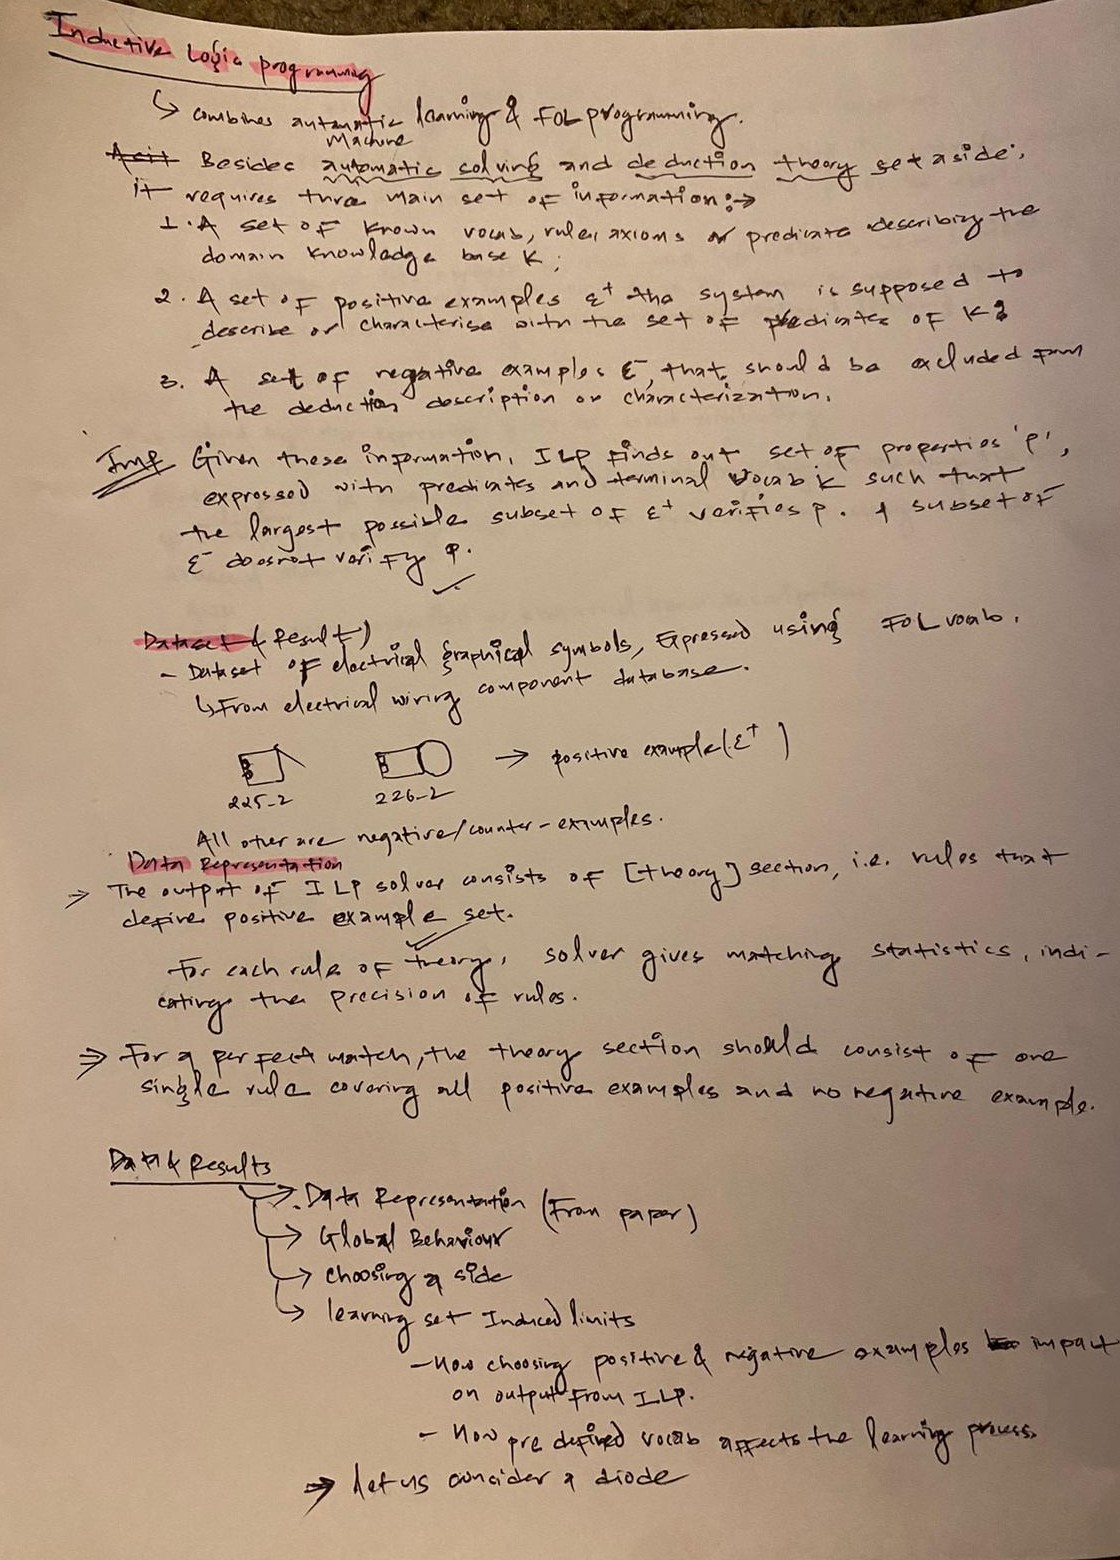 Inductive Logic programming
↳ combines automatic learning & FOL programming.
Machine
Besides automatic solving and deduction theory set aside,
it requires three main set of information :→
1. A set of known vocab, rules, axioms or predicate describing the
domain knowledge base K;
2. A set of positive examples ε+ the system is supposed to
describe or characterise with the set of predicates of K;
3. A set of negative examples ε-, that should be excluded from
the deduction description or characterization.
Imp Given these information, ILP finds out set of properties 'p',
expressed with predicates and terminal vocab K such that
the largest possible subset of ε+ verifies p. & subset of
ε- doesnot verify p.
Dataset & Result)
- Dataset of electrical graphical symbols, Expressed using FOL vocab.
↳ From electrical wiring component database.
→ positive example (ε+)
225-2 226-2
All other are negative/counter-examples.
Data Representation
⇒ The output of ILP solver consists of [theory] section, i.e. rules that
define positive example set.
For each rule of theory, solver gives matching statistics, indi-
cating the precision of rules.
⇒ For a perfect match, the theory section should consist of one
single rule covering all positive examples and no negative example.
Data & Results
→ Data Representation (From paper)
→ Global Behaviour
→ choosing a side
↳ learning set Induced limits
- How choosing positive & negative examples impact
on output from ILP.
- How pre defined vocab affects the learning process.
⇒ let us consider a diode